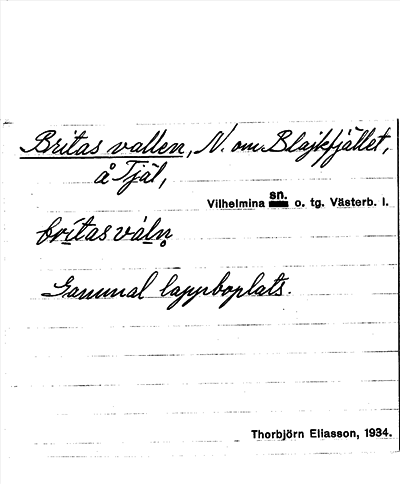 Britas vallen, N. om Blajkfjället,
å Tjäl,
Vilhelmina sn. o. tg. Västerb. l.
britas váln̥
Gammal lappboplats.
Thorbjörn Eliasson, 1934.